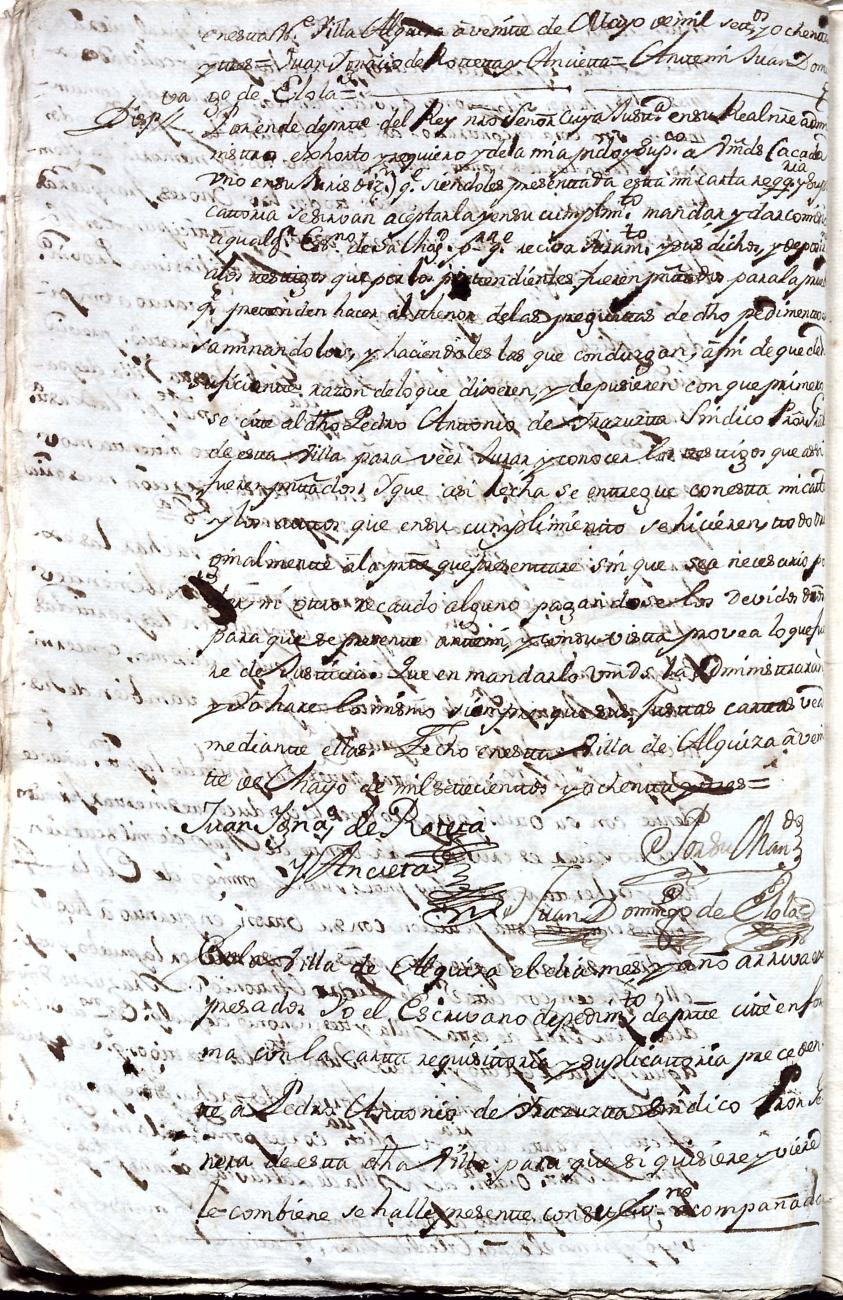 en esta N.e Villa Alquiza a veinte de Mayo de mil sett.os y ochenta
y tres = Juan Ignacio de Rotteta y Ancietta = Antemi Juan Domin
go de Elola =
Por ende de partte del Rey nro Señor cuya Justt.a en su Real nre admi
nistro exhorto y requiero y de la mia pido y Sup.co a Vmds cada
uno en su Jurisdiz.n q.e siendoles presenttada esta mi carta reqq.ria y Supli
cattoria se sirvan aceptarla y en su cumplim.to mandar y dar comisi
a qualq.r Ess.no de Sa Mag.d p.a q.e reciva Juram.to y sus dichos y deposi
a los testigos que por los pretendientes fueren pntados para la prue
q.e pretenden hacer al thenor de las preguntas de dho pedimento
saminandolos, y haciendoles las que condurgan, a fin de que den
suficiente razon de lo que dixeren y depusieren con que primero
se cite al dho Pedro Antonio de Irazuzta Sindico Pror Gral
de esta Villa para veer Jurar y conocer los testigos que assi
fueren pntados, Y que asi fecha se entregue con esta mi carta
y los autos que en su cumplimiento se hicieren, todo ori
ginalmente a la parte que presentare sin que sea necesario po
der, ni otro recaudo alguno pagandose los devidos drõs
para que se presente antemi y con su vista provea lo que fue
re de Justicia. Que en mandarlo Vmds la administraran
y Yo hare lo mismo siempre que sus Justtas cartas vea
mediante ellas. Fecho en esta Villa de Alquiza a vein
te de Mayo de mil settecientos y ochenta y tres =
Juan Ign.o de Roteta
y Ancieta
Por su Man.do
Juan Domingo de Elola
En la Villa de Alquiza el dia mes y año arriva ex
presados Yo el Escrivano de pedim.to de partte cite en for
ma con la cartta requisittoria y suplicattoria preceden
te a Pedro Antonio de Irazuzta Sindico Pror Ge
neral de esta dha Villa, para que si quisiere y viere
le combiene se halle presente con su Ess.no acompañado